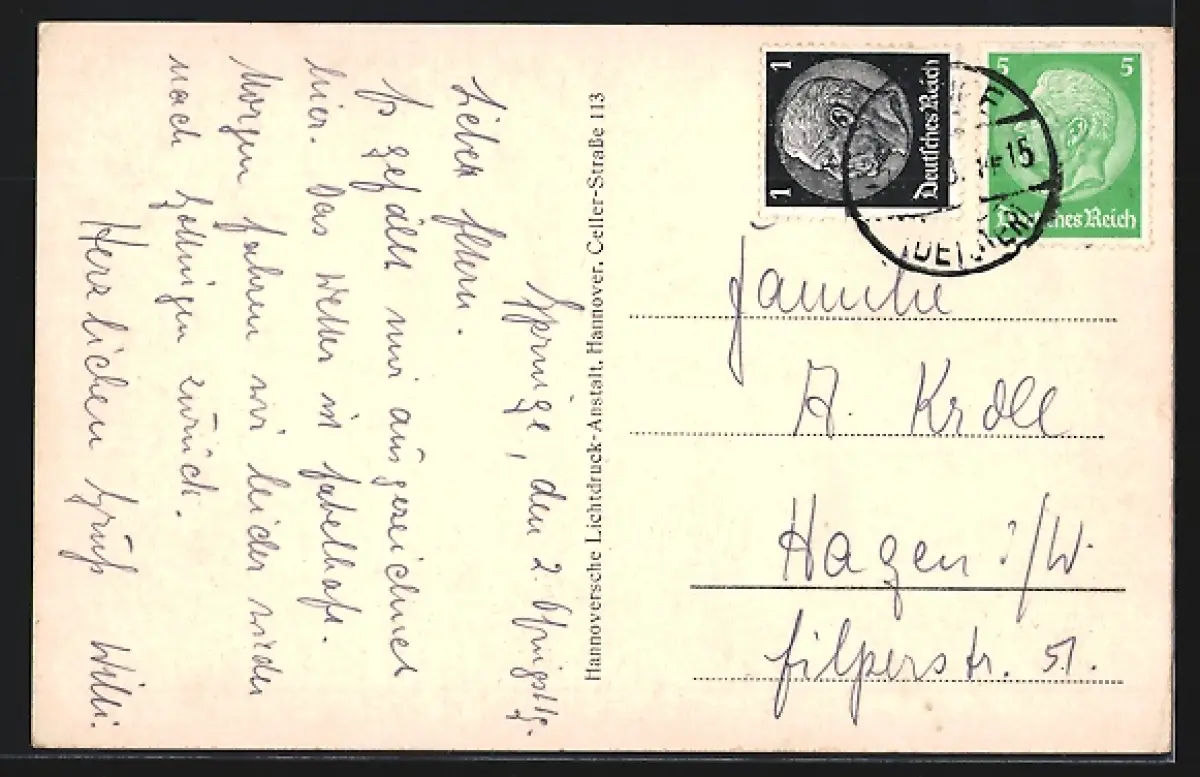 Springe, den 2. Pfingsttg.
Lieben Eltern.
Es gefällt mir ausgezeichnet
hier. Das Wetter ist fabelhaft.
Morgen fahren wir leider wieder
nach zurück.
Herzlichen Gruß Willi.
Hannoversche Lichtdruck-Anstalt, Hannover, Celler-Straße 113
1 1
Deutsches Reich
5 5
Deutsches Reich
15
(DEISTER)
Familie
A. Krolle
Hagen i/W.
Filperstr. 51.